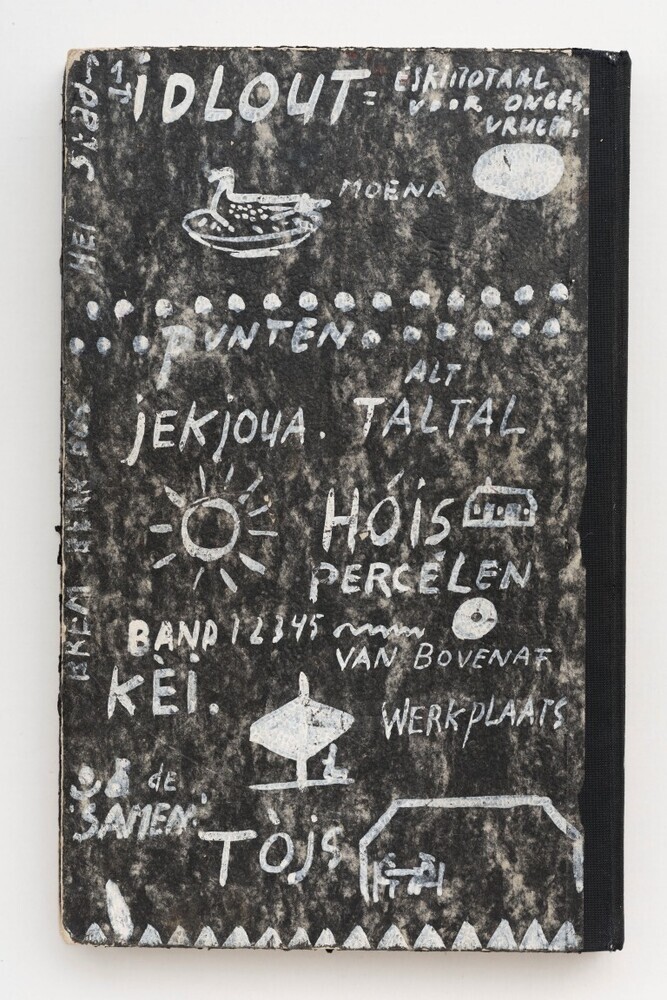 IDLOUT = ESKIMOTAAL
VOOR ONGES.
VRUCH.
MOENA
PUNTEN
ALT
jEKjOUA. TALTAL
HÓIS
PERCÉLEN
BAND 12345
VAN BOVENAF
KÈI.
WERKPLAATS
de
SAMEN.
TÒjS
HEI